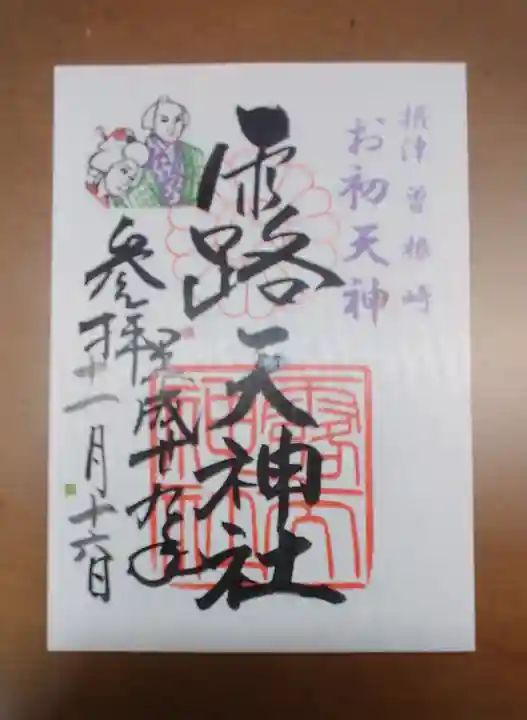 摂津 曽根崎
お初天神
露天神社
露天神社
参拝
平成廿九年
十一月十六日